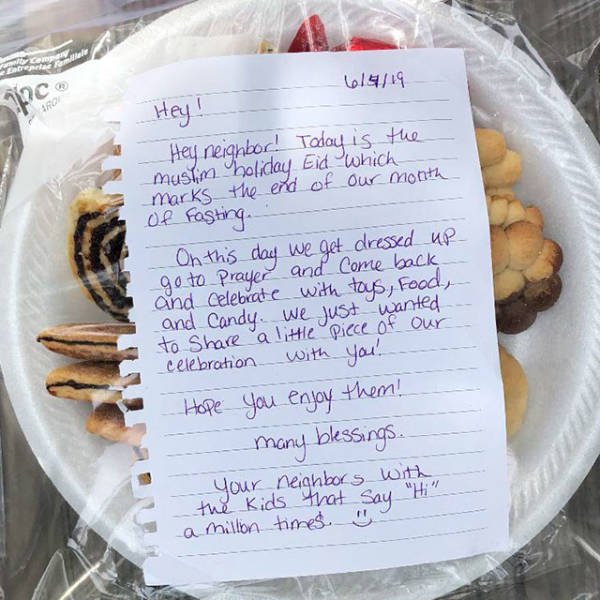 Family Company
Entreprise Familiale
pc ®
6/4/19
Hey!
Hey neighbor! Today is the
muslim holiday Eid which
marks the end of our month
of Fasting.
On this day we get dressed up
go to Prayer and Come back
and celebrate with toys, Food,
and Candy. We just wanted
to share a little piece of our
celebration with you!
Hope you enjoy them!
many blessings.
Your neighbors with
the kids that say "Hi"
a millon times. :)